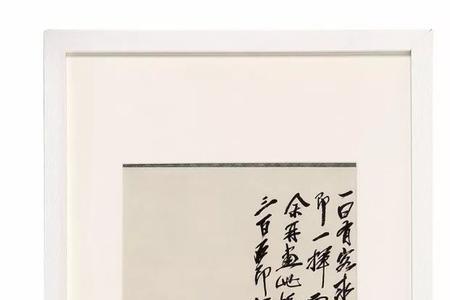 一日有客
即一揮
余再畫此
三百石印